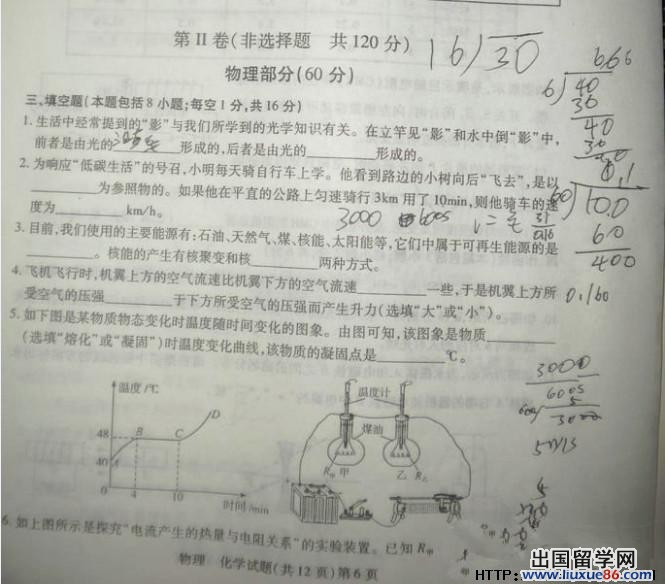 第Ⅱ卷(非选择题 共120分)
16 30
物理部分(60分)
三、填空题(本题包括8小题;每空1分,共16分)
1.生活中经常提到的“影”与我们所学到的光学知识有关。在立竿见“影”和水中倒“影”中,
前者是由光的 形成的,后者是由光的________形成的。
2.为响应“低碳生活”的号召,小明每天骑自行车上学。他看到路边的小树向后“飞去”,是以
________为参照物的。如果他在平直的公路上匀速骑行3km用了10min,则他骑车的速
度为________km/h。
3000 600s
3.目前,我们使用的主要能源有:石油、天然气、煤、核能、太阳能等,它们中属于可再生能源的是
________。核能的产生有核聚变和核________两种方式。
4.飞机飞行时,机翼上方的空气流速比机翼下方的空气流速________一些,于是机翼上方所
受空气的压强________于下方所受空气的压强而产生升力(选填“大”或“小”)。
5.如下图是某物质物态变化时温度随时间变化的图象。由图可知,该图象是物质________
(选填“熔化”或“凝固”)时温度变化曲线,该物质的凝固点是________℃。
666
6 40
36
40
0.1
60
400
0.1/60
3000
600s
5m/s
温度/℃
48
40
0
A
B
C
D
4
10
时间/min
温度计
煤油
R甲 甲
乙 R乙
6.如上图所示是探究“电流产生的热量与电阻关系”的实验装置。已知R甲
物理 化学试题(共12页)第6页
HTTP:
出国留学网
www.liuxue86.com